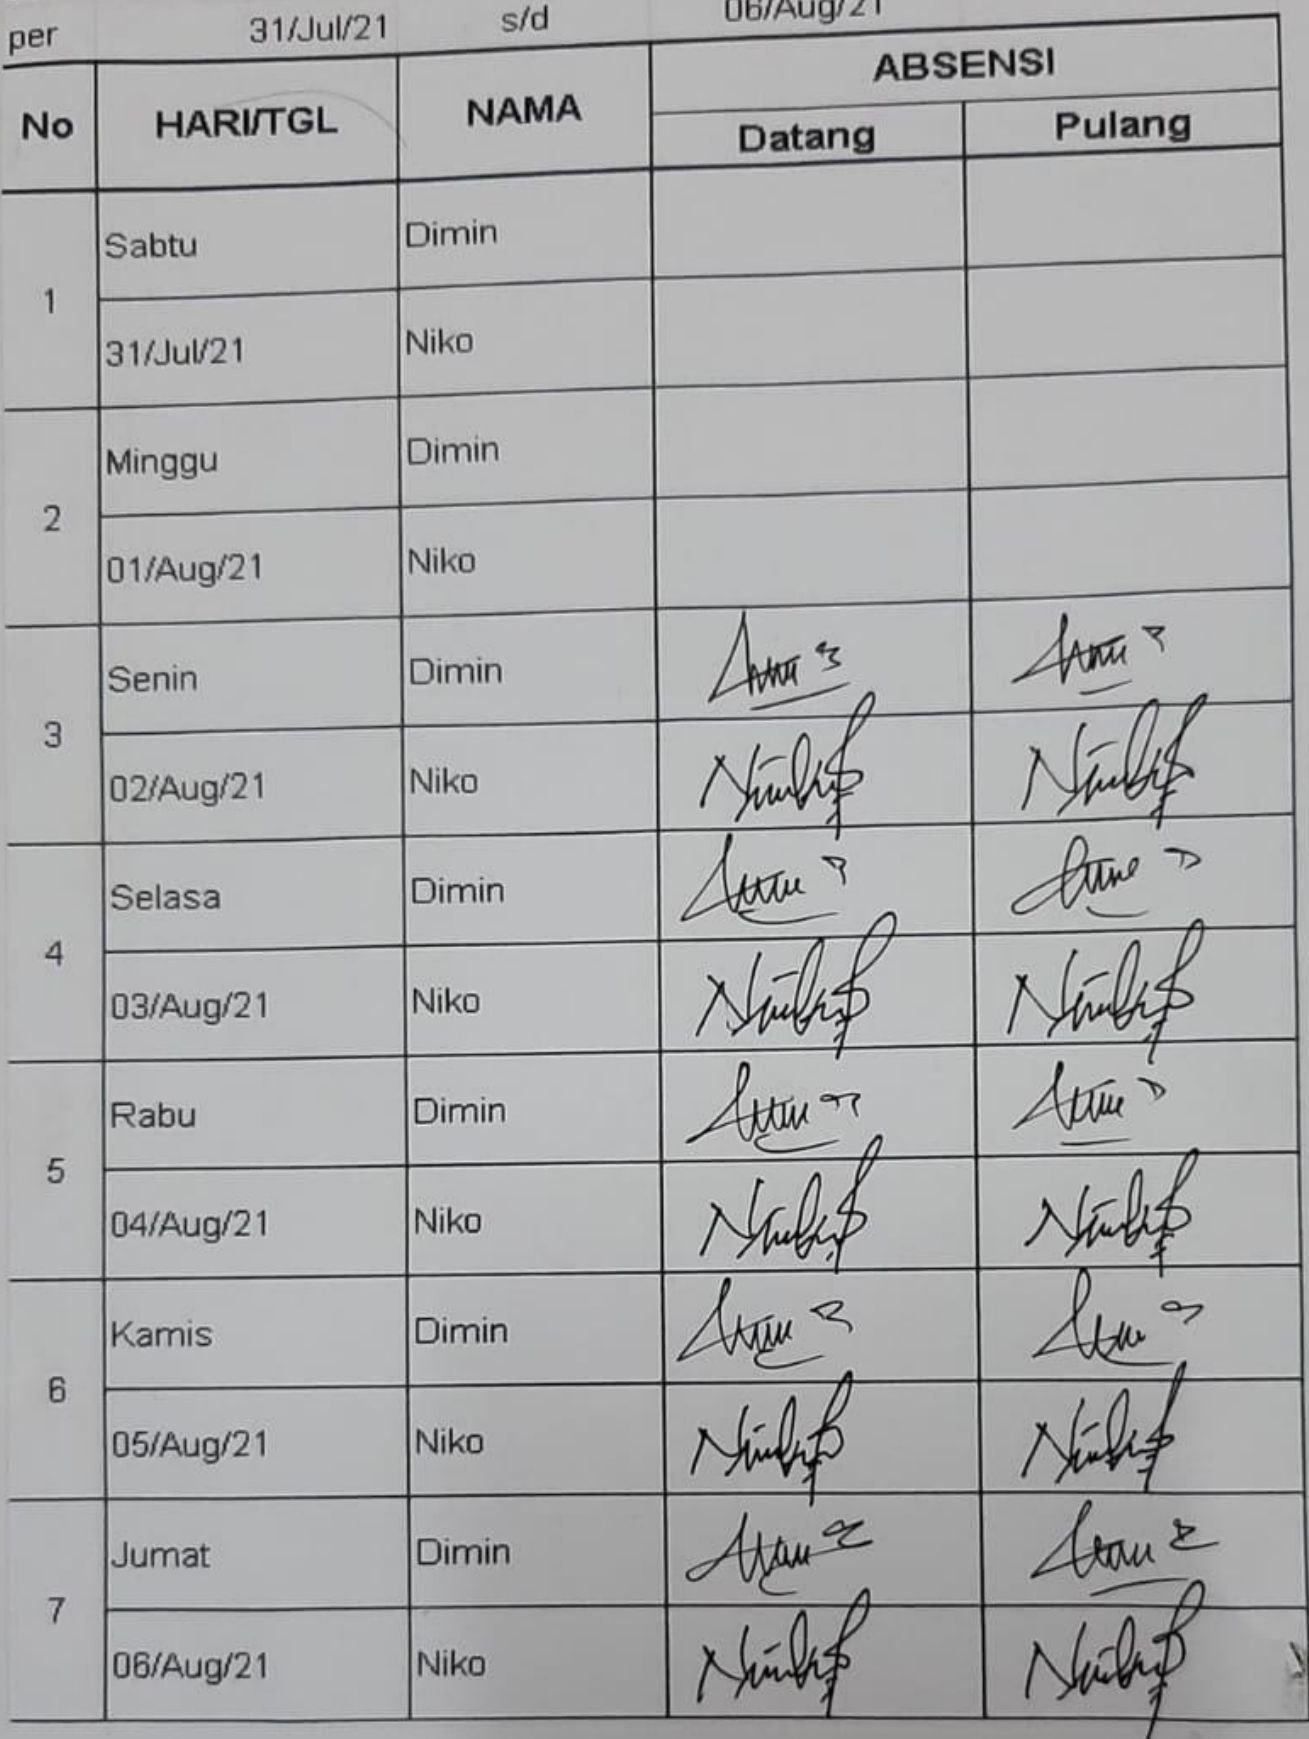 per 31/Jul/21 s/d 06/Aug/21
No HARI/TGL NAMA ABSENSI
Datang Pulang
1 Sabtu Dimin
31/Jul/21 Niko
2 Minggu Dimin
01/Aug/21 Niko
3 Senin Dimin
02/Aug/21 Niko
4 Selasa Dimin
03/Aug/21 Niko
5 Rabu Dimin
04/Aug/21 Niko
6 Kamis Dimin
05/Aug/21 Niko
7 Jumat Dimin
06/Aug/21 Niko